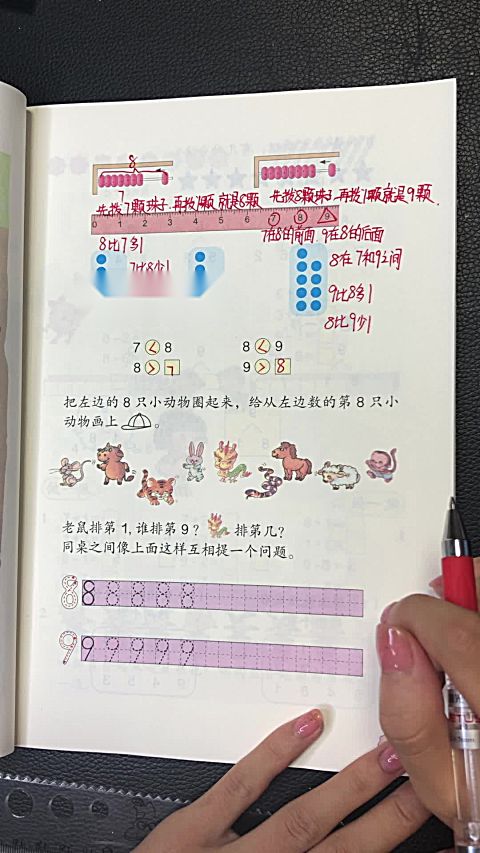 8
7
先拨7颗珠子.再拨1颗就是8颗 先拨8颗珠子.再拨1颗就是9颗.
0 1 2 3 4 5 6 7 8 9
7在8的前面.9在8的后面
8比7多1
7比8少1
8在7和9之间
9比8多1
8比9少1
7 < 8 8 < 9
8 > 7 9 > 8
把左边的 8 只小动物圈起来，给从左边数的第 8 只小
动物画上 。
老鼠排第 1, 谁排第 9？ 排第几？
同桌之间像上面这样互相提一个问题。
8 8 8 8 8 8
9 9 9 9 9 9